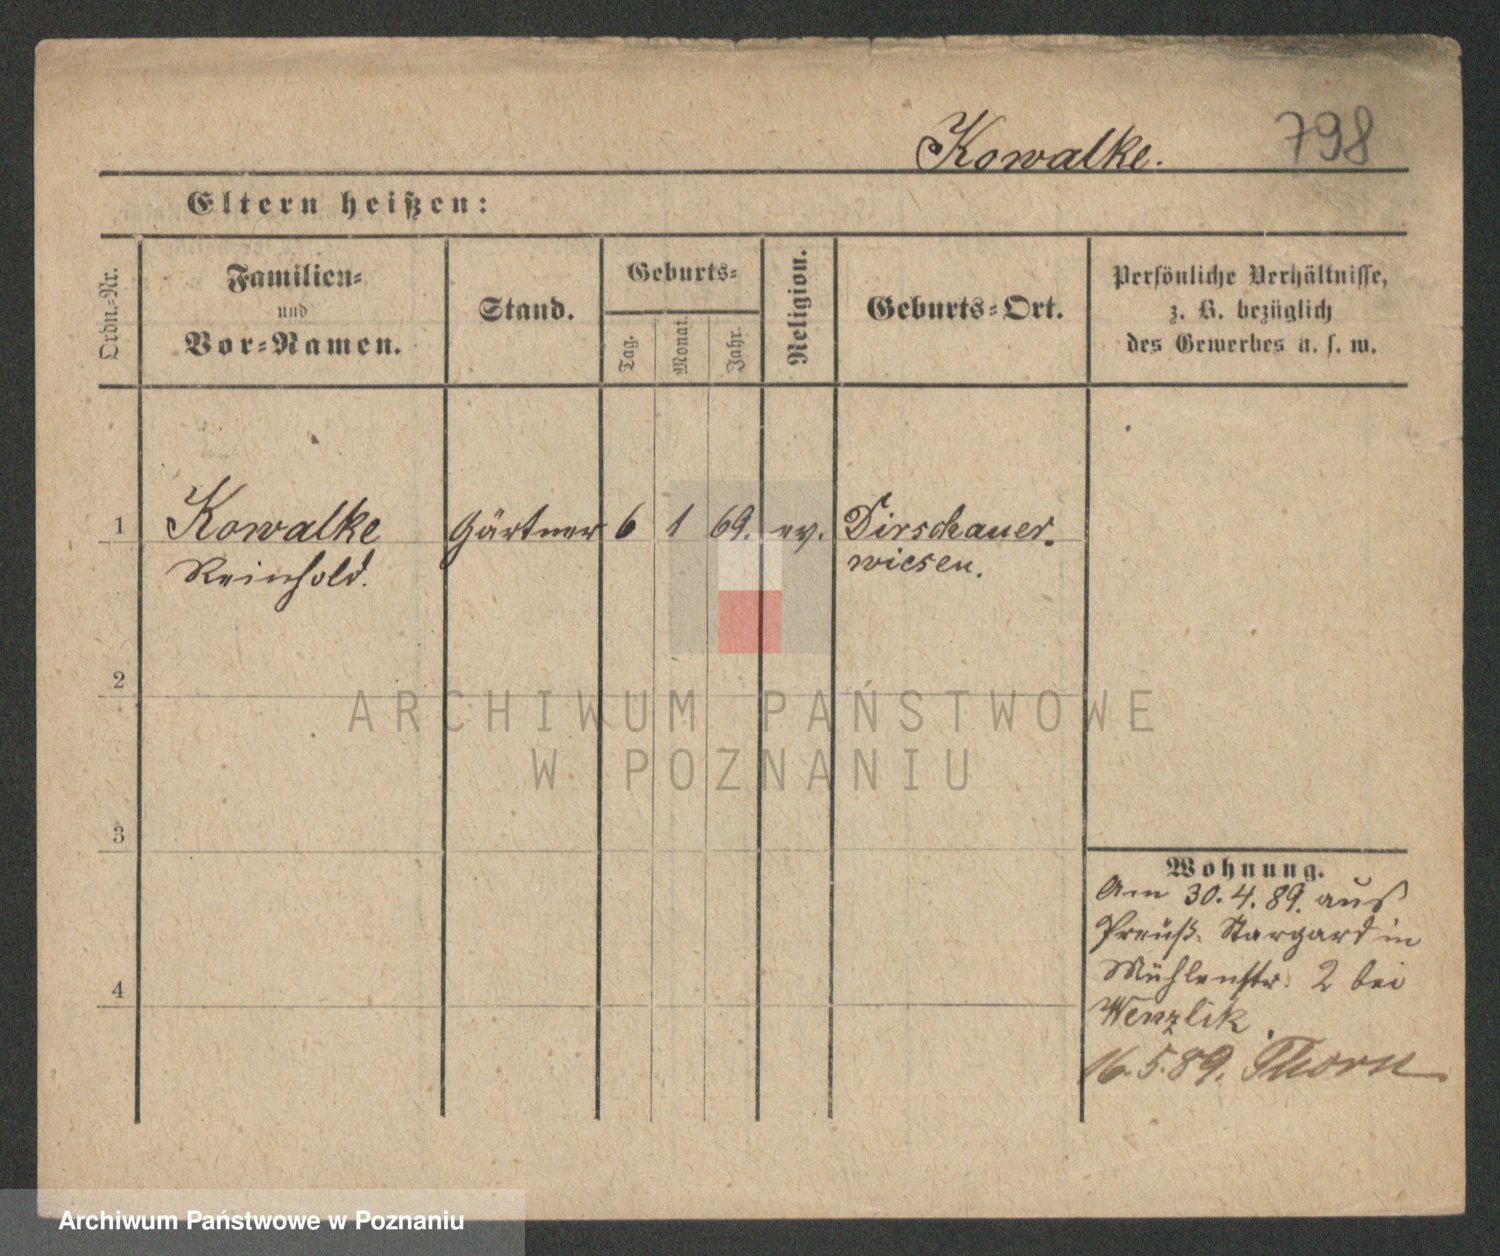 Kowalke.
798
Eltern heißen:
Ordn.-Nr.
Familien-
und
Vor-Namen.
Stand.
Geburts-
Tag.
Monat.
Jahr.
Religion.
Geburts-Ort.
Persönliche Verhältnisse,
z. B. bezüglich
des Gewerbes u. s. w.
1 Kowalke Gärtner 6 1 69. ev. Dirschauer-
Reinhold. wiesen.
2
ARCHIWUM PAŃSTWOWE
W POZNANIU
3
Wohnung.
Am 30.4.89. aus
Preuß. Stargard in
Mühlenstr. 2 bei
Wenzlik.
4
16.5.89. Thorn
Archiwum Państwowe w Poznaniu